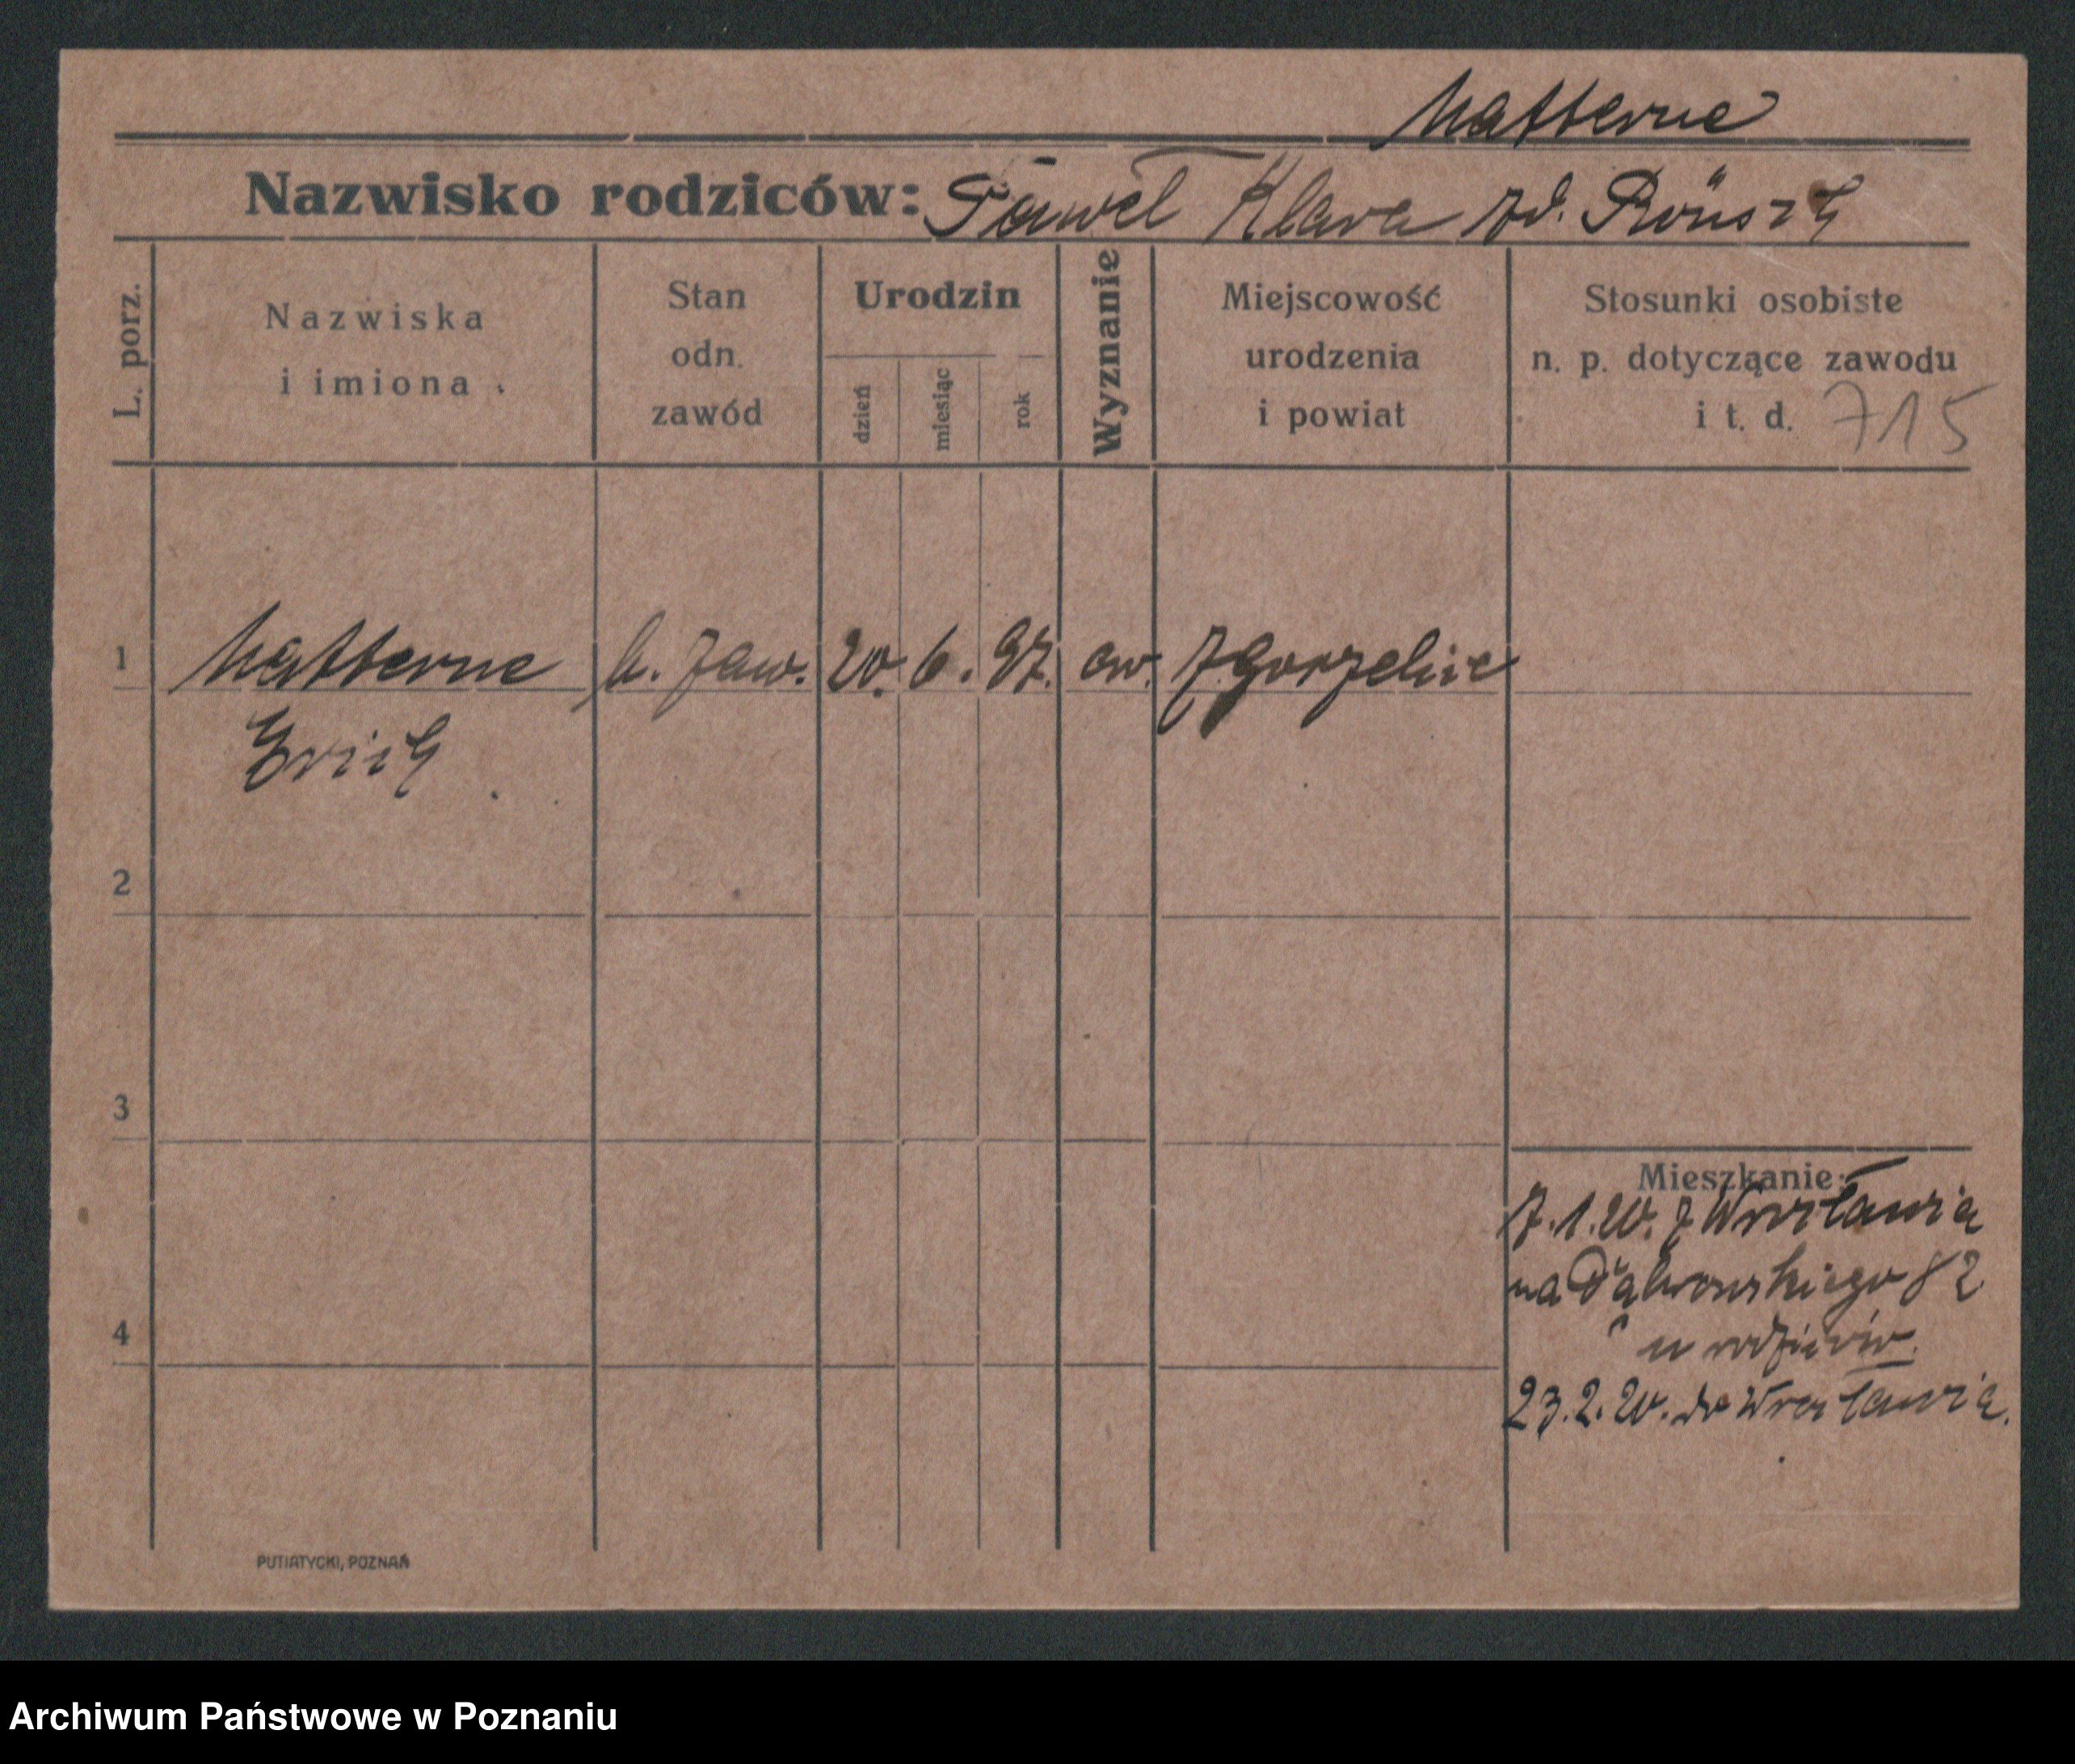 Matterne
Nazwisko rodziców: Paweł Klara zd.
L. porz.
Nazwiska
i imiona
Stan
odn.
zawód
Urodzin
dzień
miesiąc
rok
Wyznanie
Miejscowość
urodzenia
i powiat
Stosunki osobiste
n. p. dotyczące zawodu
i t. d. 715
1 Matterne b. zaw. 20. 6. 97. ew. Zgorzelice
Erich
2
3
4
Mieszkanie:
7.1.20. z Wrocławia
na Dąbrowskiego 82
u rodziców.
23.2.20. do Wrocławia.
PUTIATYCKI, POZNAŃ
Archiwum Państwowe w Poznaniu